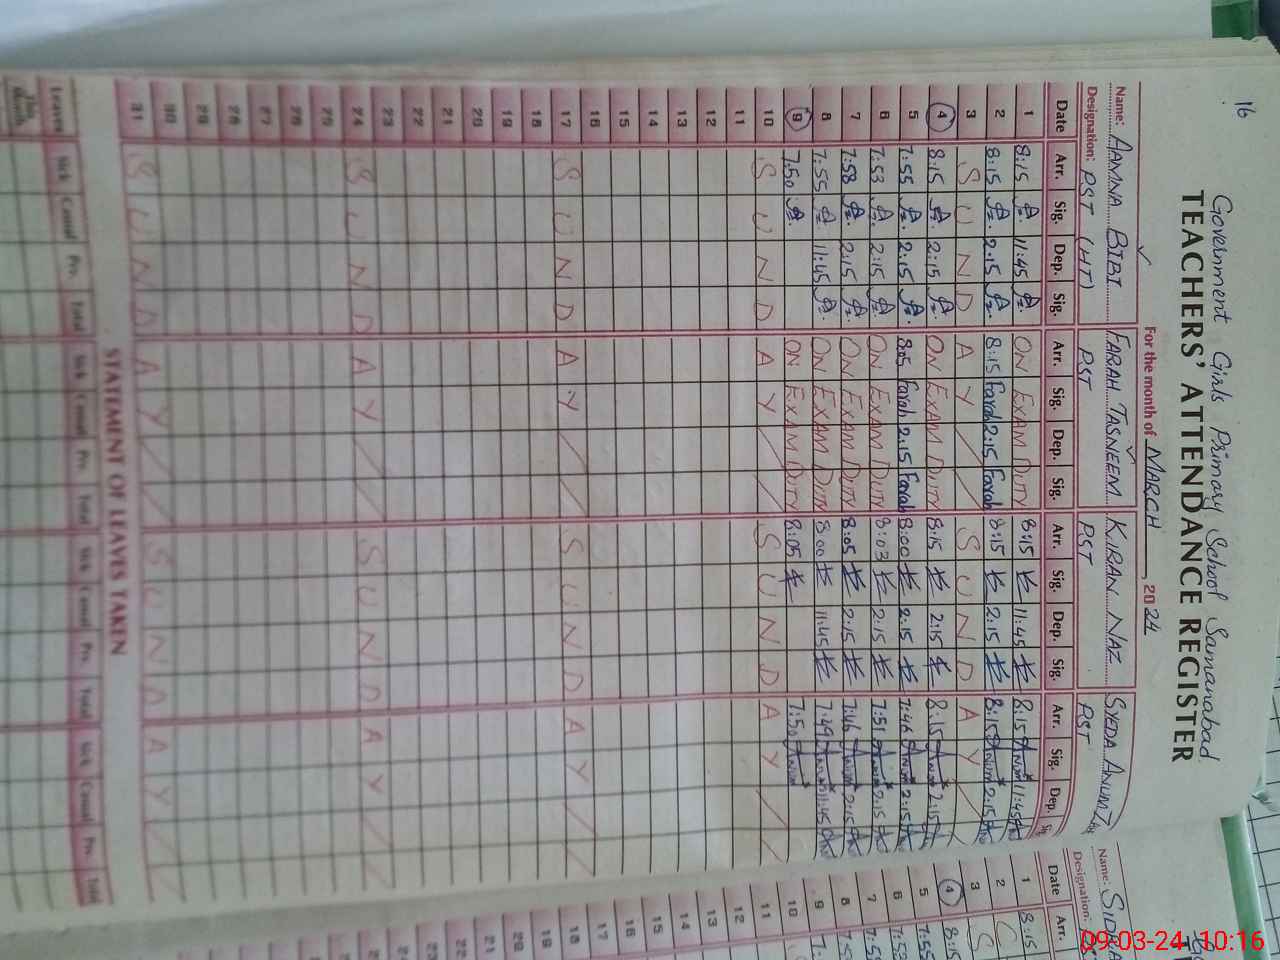 16
Government Girls Primary School Samanabad.
TEACHERS' ATTENDANCE REGISTER
For the month of MARCH, 2024
Name: AAMNA BIBI FARAH TASNEEM KIRAN NAZ SYEDA ANUM
Designation: PST (HT) PST PST PST
Date Arr. Sig. Dep. Sig. Arr. Sig. Dep. Sig. Arr. Sig. Dep. Sig. Arr. Sig. Dep.
1 8:15 11:45 ON EXAM DUTY 8:15 11:45 8:15 11:45
2 8:15 2:15 8:15 Farah 2:15 Farah 8:15 2:15 8:15 2:15
3 S U N D A Y S U N D A Y
4 8:15 2:15 ON EXAM DUTY 8:15 2:15 8:15 2:15
5 7:55 2:15 8:05 Farah 2:15 Farah 8:00 2:15 7:46 2:15
6 7:53 2:15 ON EXAM DUTY 8:03 2:15 7:51 2:15
7 7:58 2:15 ON EXAM DUTY 8:05 2:15 7:46 2:15
8 7:55 11:45 ON EXAM DUTY 8:00 11:45 7:49 11:45
9 7:50 ON EXAM DUTY 8:05 7:50
10 S U N D A Y S U N D A Y
11
12
13
14
15
16
17 S U N D A Y S U N D A Y
18
19
20
21
22
23
24 S U N D A Y S U N D A Y
25
26
27
28
29
30
31 S U N D A Y S U N D A Y
STATEMENT OF LEAVES TAKEN
Leaves Sick Casual Prv. Total Sick Casual Prv. Total Sick Casual Prv. Total Sick Casual Prv. Total
This Month
Name: SIDRA
Designation:
Date Arr.
1 8:15
2
3 S
4 8:15
5 7:55
6
7
8
9
10
11
12
13
14
15
16
17
18
19
20
21
22
09-03-24 10:16